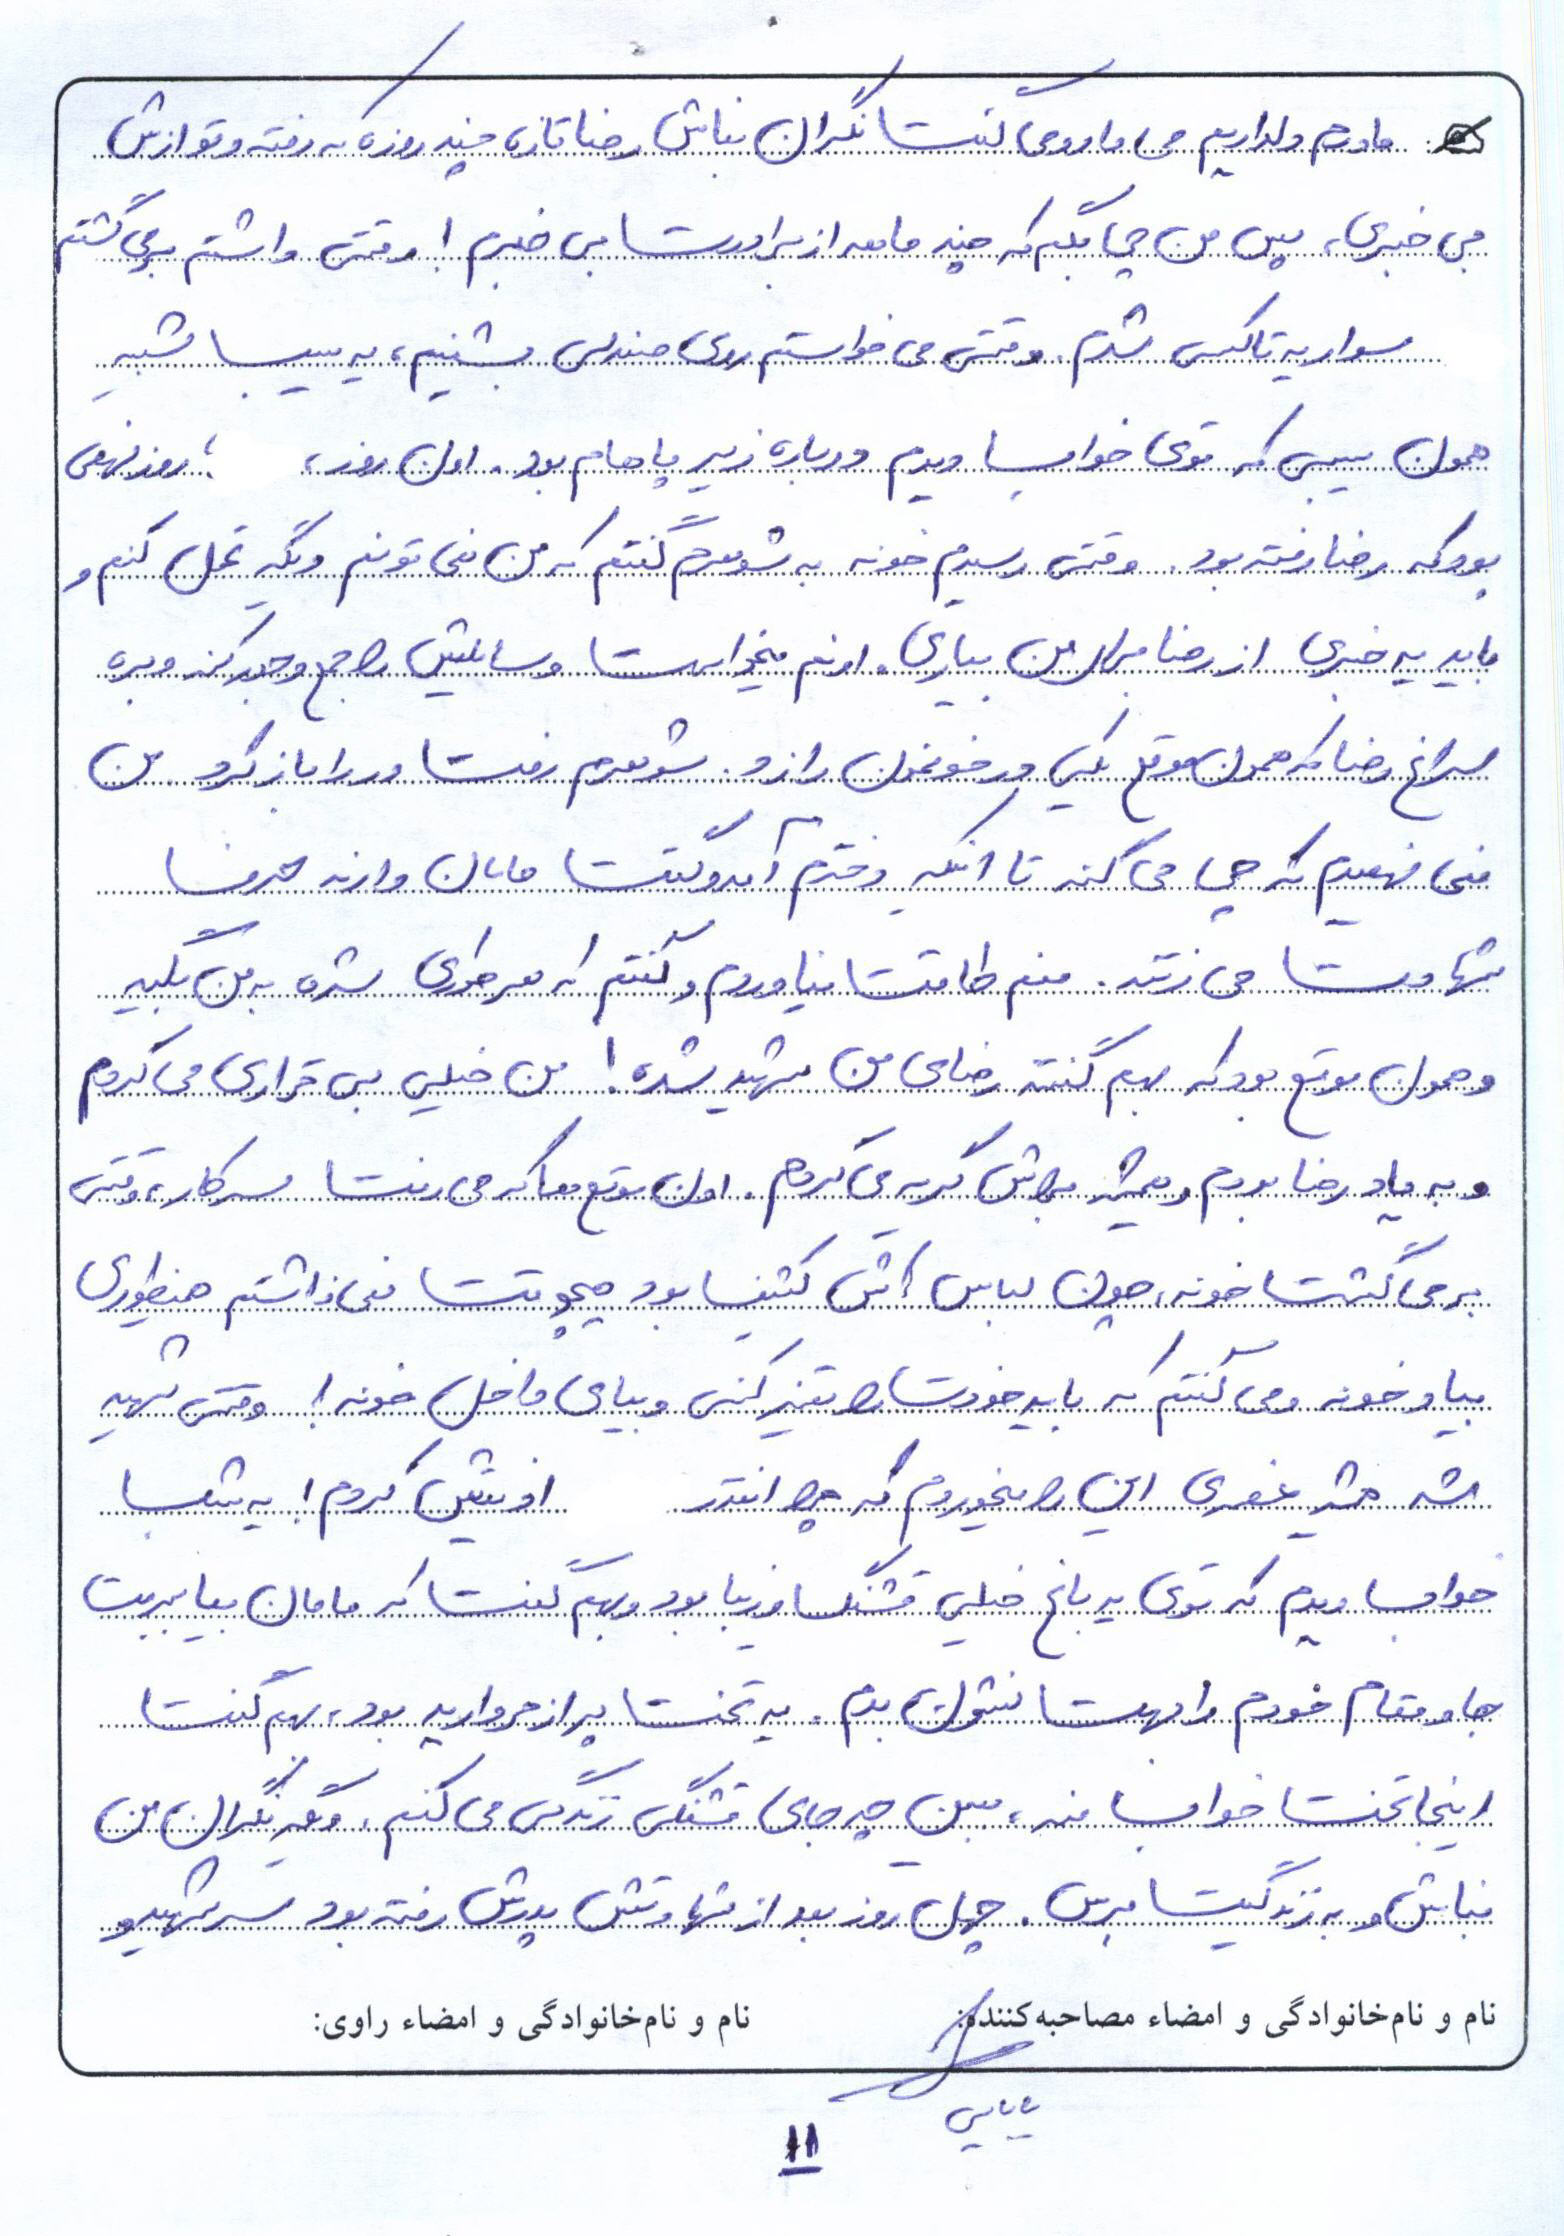 مادرم دلداریم می داد و می گفت نگران نباش رضا تازه چند روزه که رفته و تو ازش
بی خبری، پس من چی بگم که چند ماهه از برادرت بی خبرم! وقتی داشتم برمی گشتم
سوار یه تاکسی شدم. وقتی می خواستم روی صندلی بشینم، یه سیب شبیه
همون سیبی که توی خواب دیدم دوباره زیر پاهام بود. اون روز، روز نهمی
بود که رضا رفته بود. وقتی رسیدم خونه به شوهرم گفتم که من نمی تونم دیگه تحمل کنم و
باید یه خبری از رضا برای من بیاری. اونم میخواست وسایلش را جمع و جور کنه و بره
سراغ رضا که همون موقع یکی در خونمون را زد. شوهرم رفت در را باز کرد من
نمی فهمیدم که چی می گند تا اینکه دخترم آمد و گفت مامان دارند حرف
شهادت می زنند. منم طاقت نیاوردم و گفتم که هر طوری شده به من بگید
و همون موقع بود که بهم گفتند رضای من شهید شده! من خیلی بی قراری می کردم
و به یاد رضا بودم و همیشه براش گریه می کردم. اون موقع ها که می رفت سر کار، وقتی
برمی گشت خونه، چون لباس اش کثیف بود هیچوقت نمی ذاشتم همینطوری
بیاد خونه و می گفتم که باید خودت را تمیز کنی و بیای داخل خونه! وقتی شهید
شد همش غصه ی این را میخوردم که چرا انقدر اذیتش کردم! یه شب
خواب دیدم که توی یه باغ خیلی قشنگ و زیبا بود و بهم گفت که مامان بیا ببریت
جا و مقام خودم را بهت نشون بدم. یه تخت پر از مروارید بود، بهم گفت
اینجا تخت خواب منه، ببین چه جای قشنگی زندگی می کنم. دیگه نگران من
نباش و به زندگیت برس. چهل روز بعد از شهادتش پدرش رفته بود سر شهید و
نام و نام‌خانوادگی و امضاء مصاحبه‌کننده: نام و نام‌خانوادگی و امضاء راوی:
بابایی
۱۱